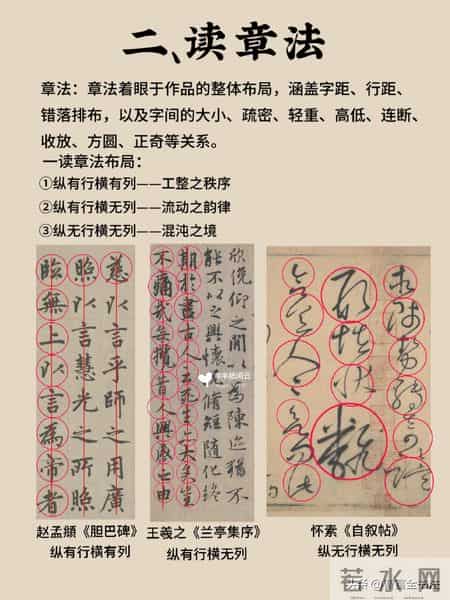 二、读章法
章法：章法着眼于作品的整体布局，涵盖字距、行距、
错落排布，以及字间的大小、疏密、轻重、高低、连断、
收放、方圆、正奇等关系。
一读章法布局：
①纵有行横有列——工整之秩序
②纵有行横无列——流动之韵律
③纵无行横无列——混沌之境
慈以言乎師之用廣
照以言慧光之所照
臨無上以言為帝者
欣俛仰之閒以為陳迹猶不
能不以之興懷況脩短隨化終
期於盡古人云死生亦大矣豈
不痛哉每攬昔人興感之由
赵孟頫《胆巴碑》
纵有行横有列
王羲之《兰亭集序》
纵有行横无列
怀素《自叙帖》
纵无行横无列
若水网